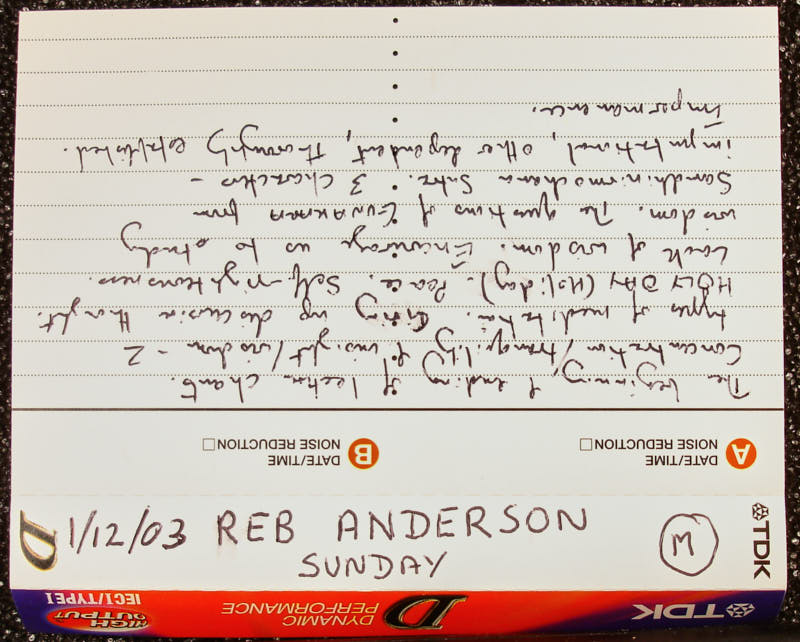 TDK D DYNAMIC PERFORMANCE HIGH OUTPUT IECI/TYPEI
TDK M 1/12/03 REB ANDERSON D
SUNDAY
A DATE/TIME B DATE/TIME
NOISE REDUCTION NOISE REDUCTION
The beginning, & ending of lecture chants.
Concentration / tranquility & insight / wisdom - 2
types of meditation. Giving up discursive thought.
HOLY DAY (Holiday). Peace. Self-righteousness.
Lack of wisdom. Encourage us to study
wisdom. The questions of GUNAKARA from
Samdhinirmochana Sutra. 3 characters -
imputational, other dependent, thoroughly established.
Impermanence.